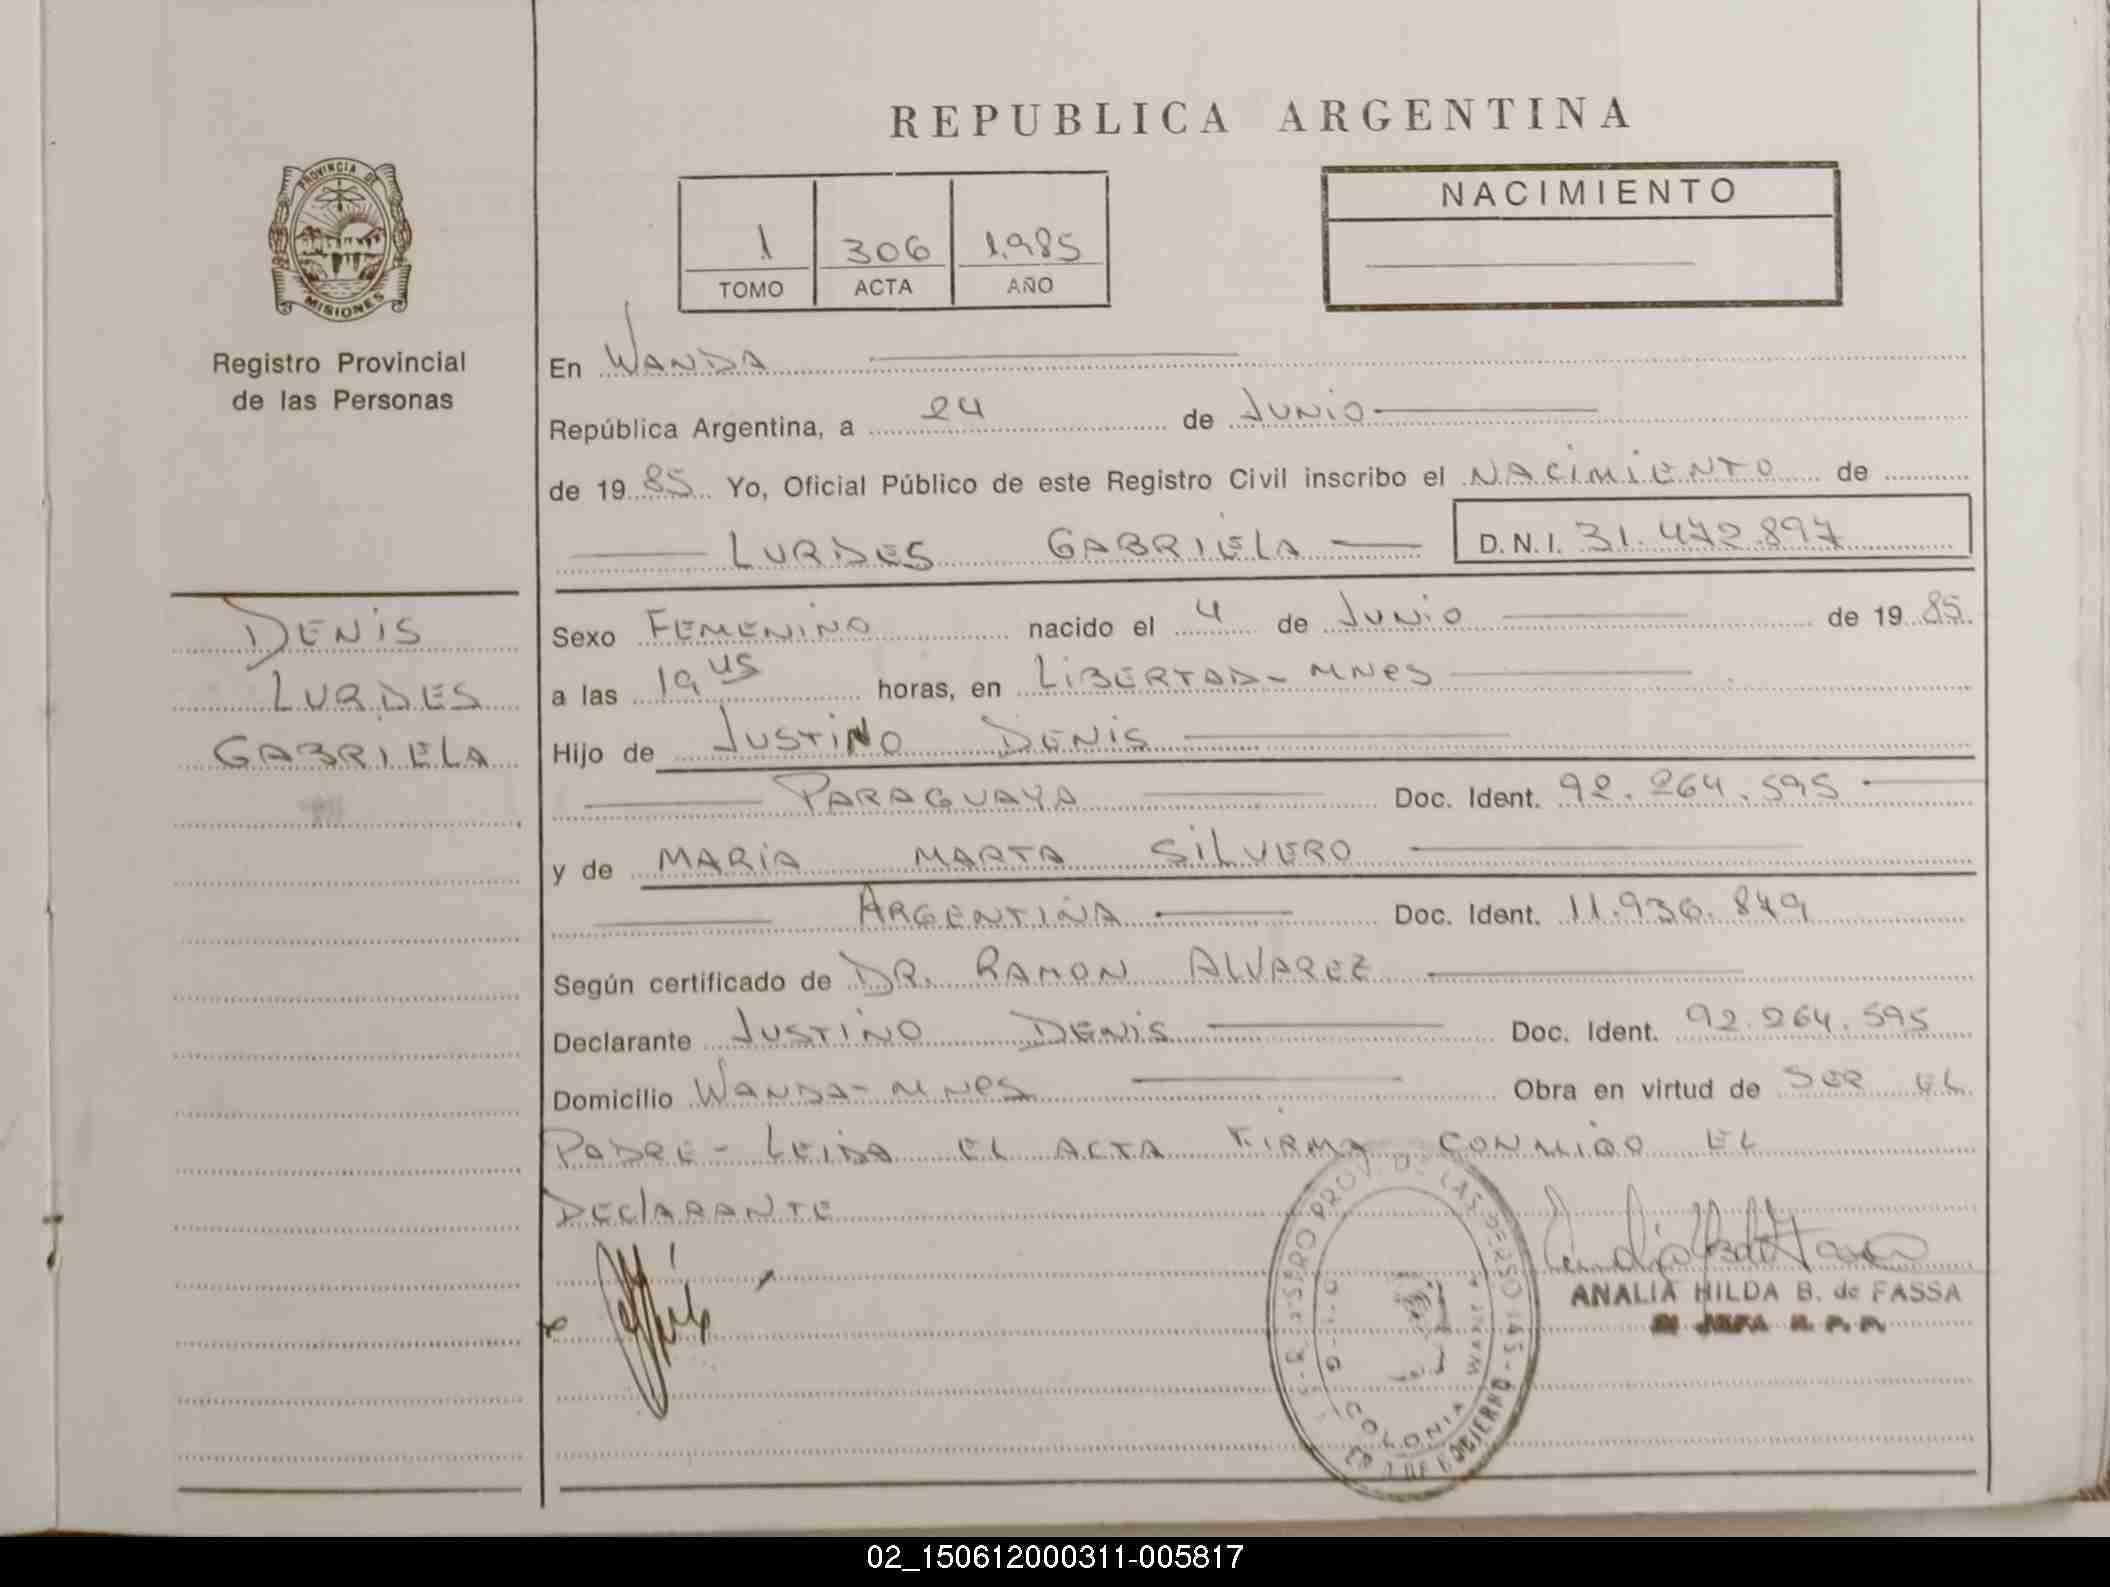 REPUBLICA ARGENTINA
PROVINCIA DE
MISIONES
Registro Provincial
de las Personas
1 306 1.985
TOMO ACTA AÑO
NACIMIENTO
En WANDA
República Argentina, a 24 de JUNIO
de 1985 Yo, Oficial Público de este Registro Civil inscribo el NACIMIENTO de
LURDES GABRIELA D.N.I. 31.472.897
DENIS
LURDES
GABRIELA
Sexo FEMENINO nacido el 4 de JUNIO de 1985
a las 19 45 horas, en LIBERTAD-MNES
Hijo de JUSTINO DENIS
PARAGUAYA Doc. Ident. 92.264.595
y de MARIA MARTA SILVERO
ARGENTINA Doc. Ident. 11.936.849
Según certificado de DR. RAMON ALVAREZ
Declarante JUSTINO DENIS Doc. Ident. 92.264.595
Domicilio WANDA-MNES Obra en virtud de SER EL
PADRE - LEIDA EL ACTA FIRMA CONMIGO EL
DECLARANTE
ANALIA HILDA B. de FASSA
COLONIA WANDA
02_150612000311-005817